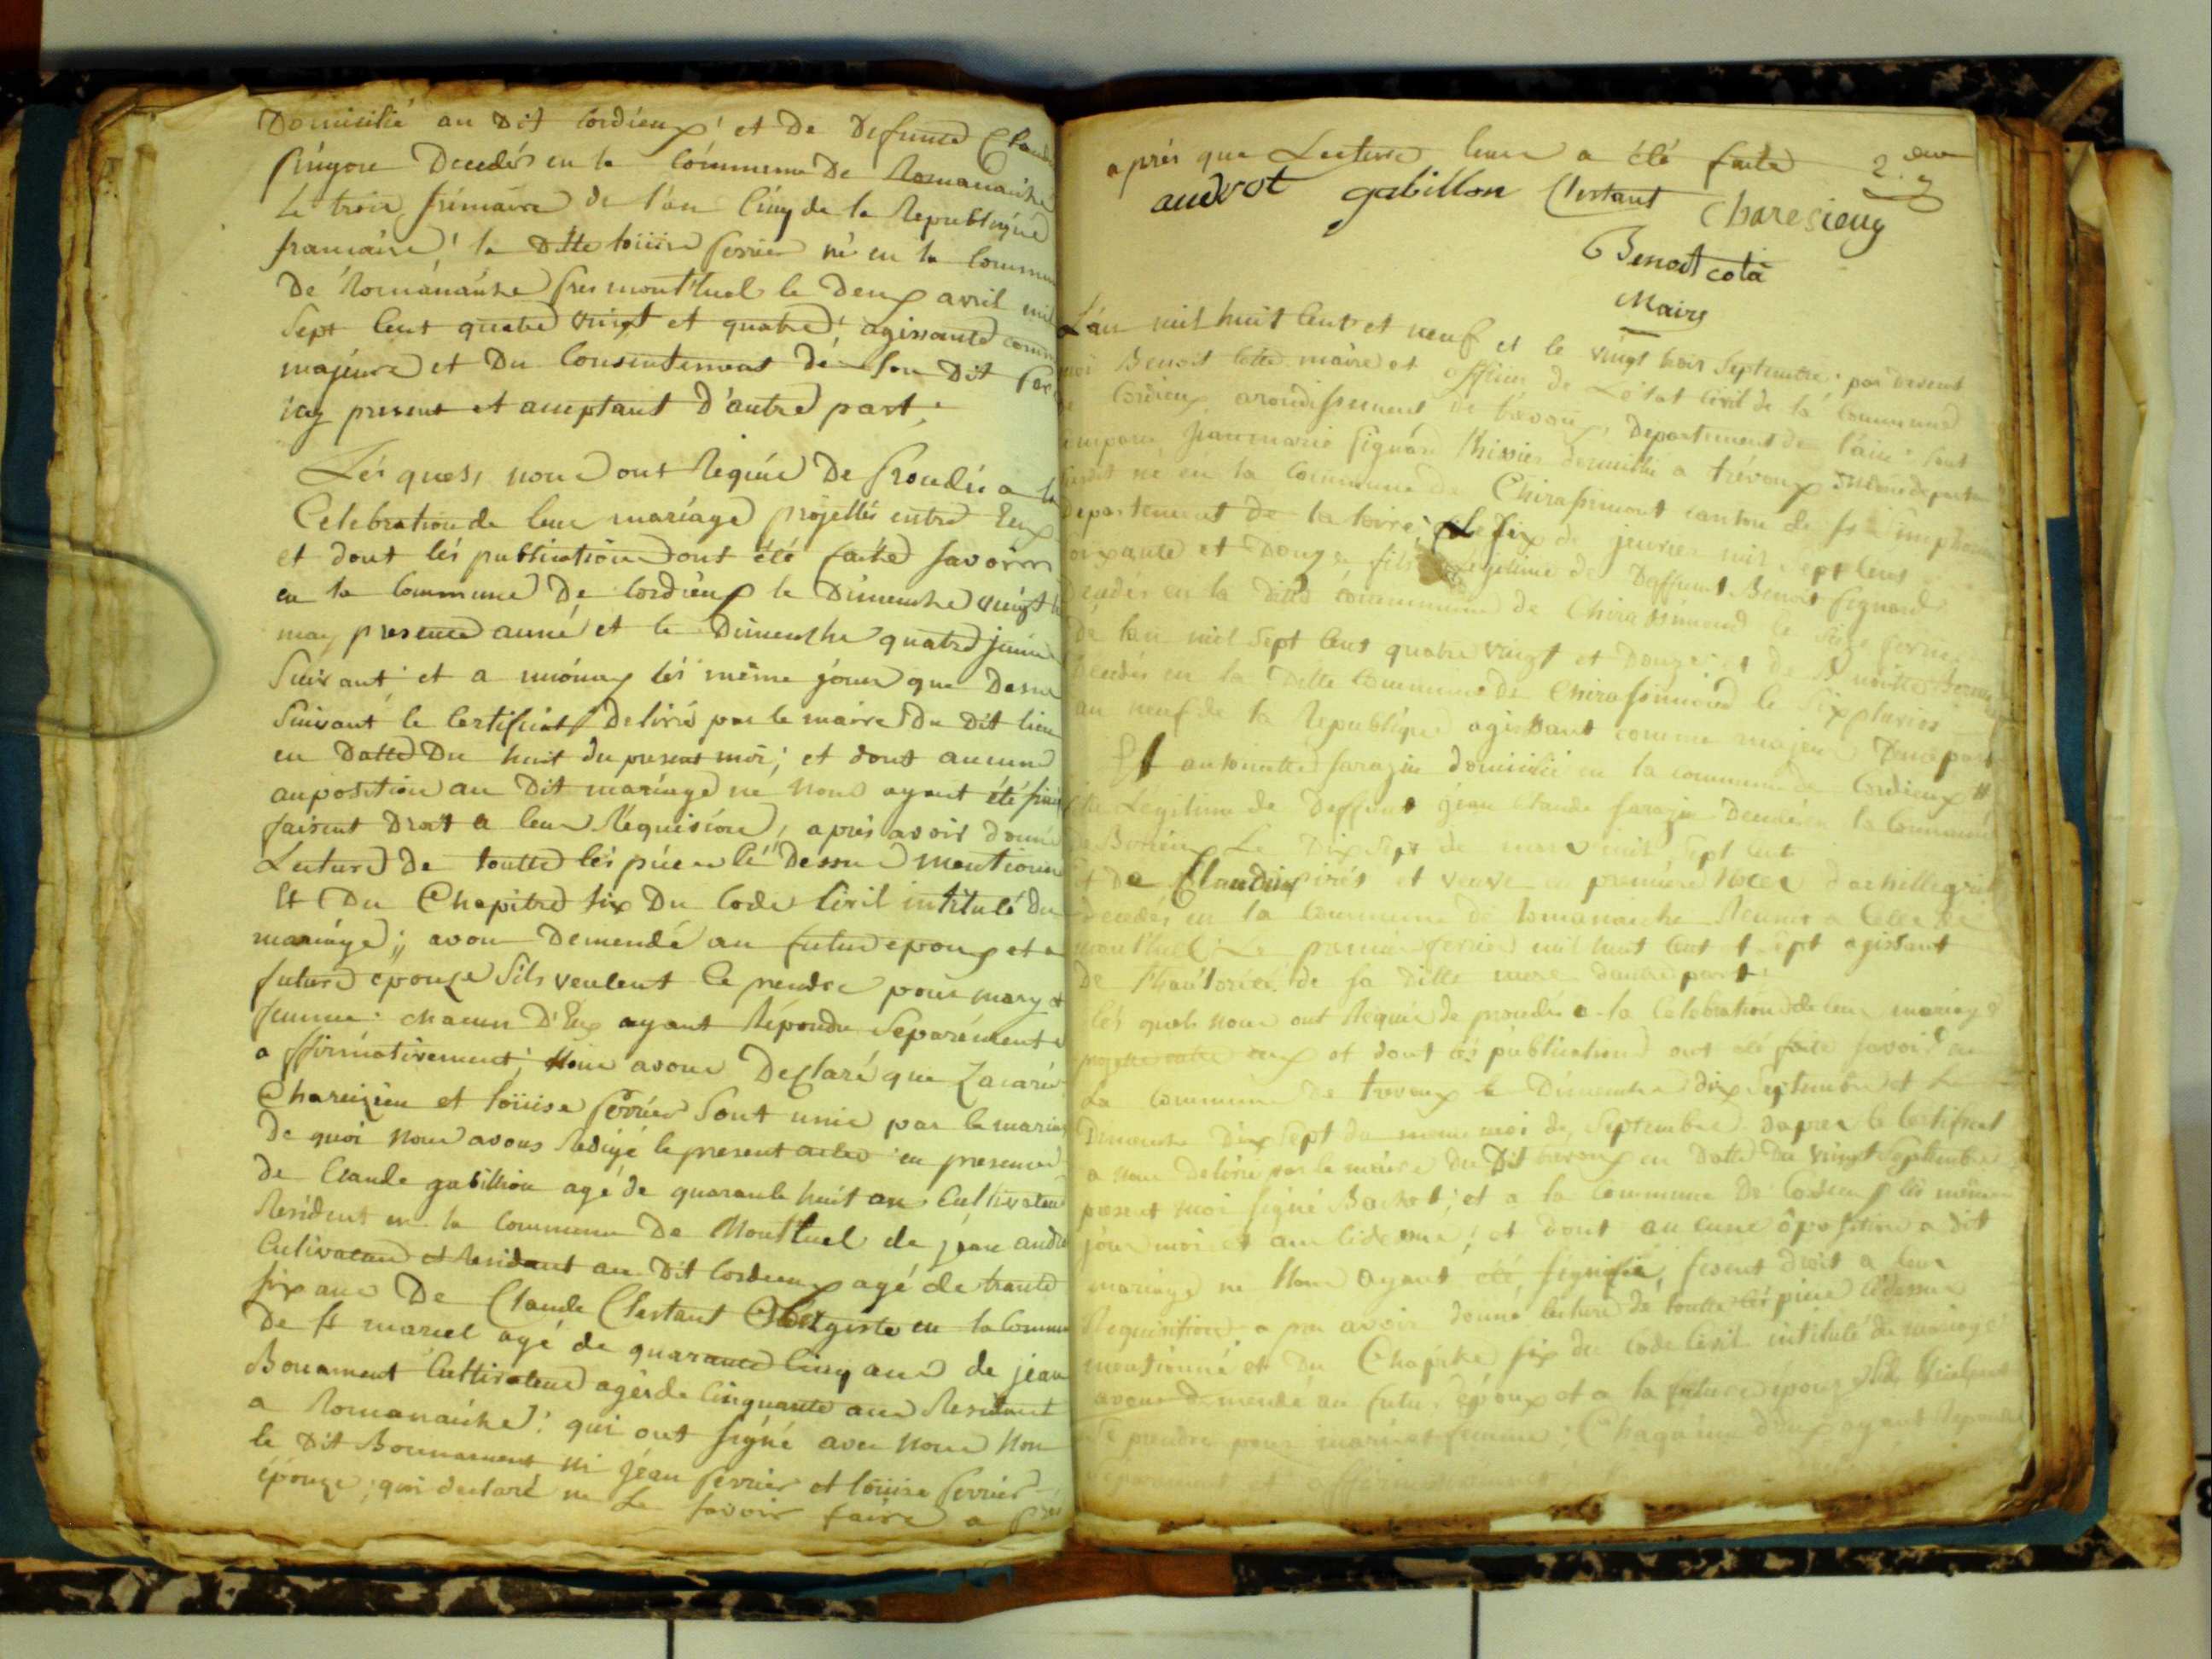 Domicilié au Dit Cordieux et De Defunte Claud
Decedés en la Commune De Romananche
Le trois frimaire de l'an Cinq de la Republique
francaise; la Ditte loüise ferrier né en la Commun
De Romananche pres montluel le Deux avril mil
Sept Cent quatre vingt et quatre; agissante comm
majeure et Du Consentement de son Dit per
icy present et acceptant D'autre part;
Lesquels, nous ont requis De Procedér a la
Celebration de leur mariage projettés entre Eux
et dont les publication ont été faite savoir
en la Commune De Cordieux le Dimenche vingt
may presente anné et le Dimenche quatre juin
Suivant; et a les même jour que Dessu
Suivant le Certificat Delivré par le maire Du Dit lieu
en Datte Du huit du present moi; et dont aucune
auposition au Dit mariage ne nous ayant été
faisent Droit a leur Requision, apres avoir donné
Lecture De toutte les piece Dessu mentioné
Et Du Chapitre six Du Code Civil intitulé Du
mariage; avon Demendé au futur epoux et a
future épouze Sils veulent Ce prendre pour mary et
femme: chacun D'Eux ayant Répondu Separément
affirmativement; Nous avons Declaré que Zacarie
Charezieu et loüise ferrier Sont unie par le mariag
De quoi Nous avons Redigé le present acte en presence
de Claude gabillion agé de quarante huit an Cultivateur
Resident en la Commune De Montluel de jean audr
Cultivateur et Residant au Dit Cordieux agé de trante
six ans De Claude Clertant en la Commun
De st marcel agé de quarante Cinq ans de jean
Bonament Cultivateur agés de Cinquante ans Residant
a Romananche: qui ont signé avec nous non
le Dit Bonnament ni jean ferrier et loüise ferrier
épouze; qui declaré ne Le savoir faire a
après que Lecture leur a été faite
audrot gabillon Clertant Charesieug
Benoit cota
Maire
L'an mil huit Cent et neuf et le vingt trois Septembre: par devent
moi Benoit Cotta maire et officier de L'état Civil de la Commune
Cordieux arondissement de trevoux, Departement de l'ain: sont
comparu jeanmarie signard domicilié a trévoux
né en la Commune De Chirassimont canton de st
Departement de la loire; le Dix de jeuvier mil Sept Cent
soixante et Douze fils Légitime de Deffunt Benoit signard
Decedés en la ditte commune de Chirassimond le seize
De lan mil Sept Cent quatre vingt et Douze et de
Decedés en la Ditte Commune de Chirassimond le Six pluvios
an neuf de la Republique agissant comme majeur D'une part
Et antoinette sarazin domicilié en la commune de Cordieux
fille Légitime de Deffunt jean Claude sarazin Decedé en la Commune
Le Dix Sept de mil Sept Cent
et De Claudine et veuve en premiere Noce
decedés en la Commune De Romananche Reunis a Celle de
montluel Le premier ferrier mil huit Cent et sept agissant
De l'hautorité de sa Ditte mere dautre part
les quels nous ont Requis de procedér a la Celebration de leur mariage
projette entre eux et dont les publication ont été faite savoir en
La Commune De trevoux le Dimenche dix Septembre et
Dimenche Dix Sept du meme moi de Septembre Dapres le Certificat
a nous Delivré par le maire du Dit trevoux en Datte Du vingt Septembre
present moi signé Bachet; et a la Commune De Cordieux les même
jour moi et an Cidessu; et dont aucune ôpossition a dit
mariage ne Nous ayant été signifié; fesent droit a leur
Requisition apre avoir donné lecture de toutte les piece Cidessu
mentionné et Du Chapitre six du Code Civil intitulé du mariage
avons demendé au futur époux et a la future épouze
Se prendre pour mari et femme: Chaqu'un D'eux ayant Repondu